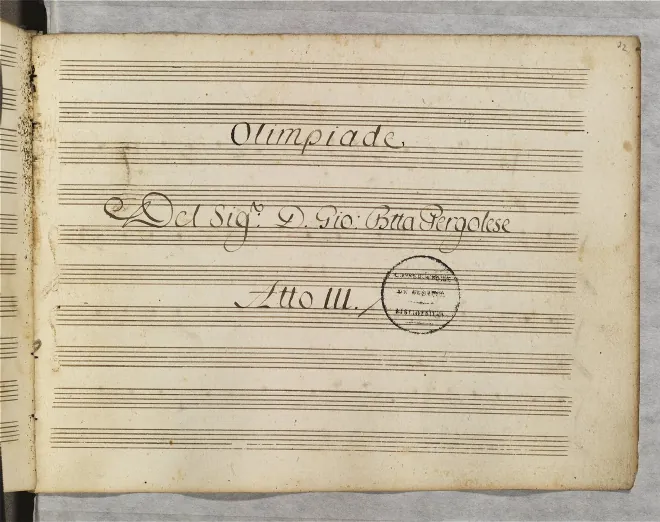 Olimpiade.
Del Sig.r D. Gio: Btta Pergolese
Atto III.